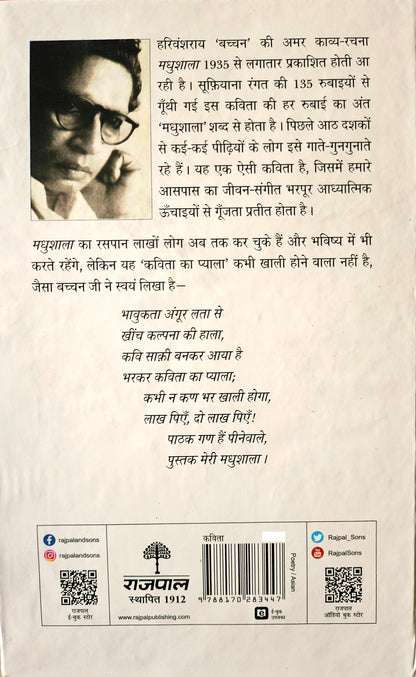 हरिवंशराय ‘बच्चन’ की अमर काव्य-रचना
मधुशाला 1935 से लगातार प्रकाशित होती आ
रही है। सूफ़ियाना रंगत की 135 रुबाइयों से
गूँथी गई इस कविता की हर रुबाई का अंत
‘मधुशाला’ शब्द से होता है। पिछले आठ दशकों
से कई-कई पीढ़ियों के लोग इसे गाते-गुनगुनाते
रहे हैं। यह एक ऐसी कविता है, जिसमें हमारे
आसपास का जीवन-संगीत भरपूर आध्यात्मिक
ऊँचाइयों से गूँजता प्रतीत होता है।
मधुशाला का रसपान लाखों लोग अब तक कर चुके हैं और भविष्य में भी
करते रहेंगे, लेकिन यह ‘कविता का प्याला’ कभी खाली होने वाला नहीं है,
जैसा बच्चन जी ने स्वयं लिखा है—
भावुकता अंगूर लता से
खींच कल्पना की हाला,
कवि साक़ी बनकर आया है
भरकर कविता का प्याला;
कभी न कण भर खाली होगा,
लाख पिएँ, दो लाख पिएँ!
पाठक गण हैं पीनेवाले,
पुस्तक मेरी मधुशाला।
rajpalandsons
rajpalandsons
राजपाल
ई-बुक स्टोर
राजपाल
स्थापित 1912
www.rajpalpublishing.com
कविता
Poetry / Asian
9 788170 283447
ई-बुक
उपलब्ध
Rajpal_Sons
RajpalSons
राजपाल
ऑडियो बुक स्टोर